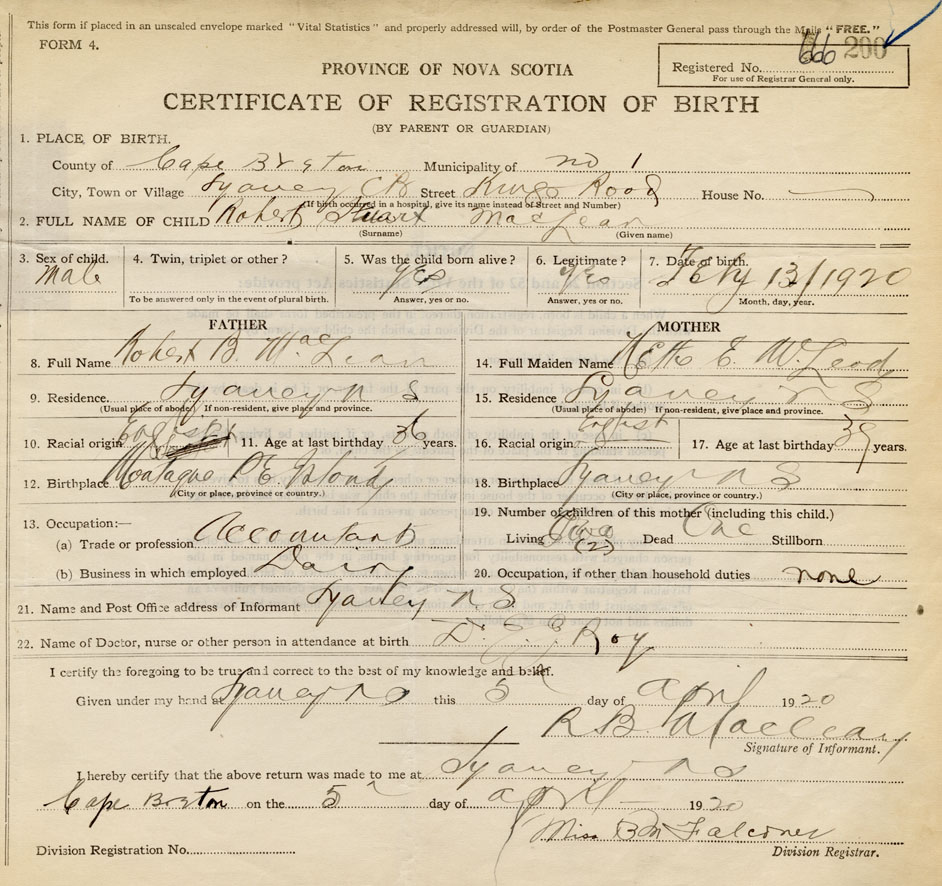 This form if placed in an unsealed envelope marked "Vital Statistics" and properly addressed will, by order of the Postmaster General pass through the Mails "FREE."
FORM 4.
666 200
Registered No.
For use of Registrar General only.
PROVINCE OF NOVA SCOTIA
CERTIFICATE OF REGISTRATION OF BIRTH
(BY PARENT OR GUARDIAN)
1. PLACE OF BIRTH.
County of Cape Breton Municipality of No 1
City, Town or Village Sydney CB Street Kings Road House No.
(If birth occurred in a hospital, give its name instead of Street and Number)
2. FULL NAME OF CHILD Robert Stuart MacLean
(Surname) (Given name)
3. Sex of child. Male 4. Twin, triplet or other? 5. Was the child born alive? yes 6. Legitimate? yes 7. Date of birth. Feby 13/1920
To be answered only in the event of plural birth. Answer, yes or no. Answer, yes or no. Month, day, year.
FATHER MOTHER
8. Full Name Robert B. MacLean 14. Full Maiden Name E. McLeod
9. Residence. Sydney N S 15. Residence Sydney N S
(Usual place of abode) If non-resident, give place and province. (Usual place of abode) If non-resident, give place and province.
10. Racial origin English 11. Age at last birthday 36 years. 16. Racial origin English 17. Age at last birthday 39 years.
12. Birthplace Montague P E Island 18. Birthplace Sydney N S
(City or place, province or country.) (City or place, province or country.)
13. Occupation:— 19. Number of children of this mother (including this child.)
(a) Trade or profession Accountant Living Two (2) Dead One Stillborn
(b) Business in which employed Dairy 20. Occupation, if other than household duties none
21. Name and Post Office address of Informant Sydney N S
22. Name of Doctor, nurse or other person in attendance at birth Roy
I certify the foregoing to be true and correct to the best of my knowledge and belief.
Given under my hand at Sydney N S this 5 day of April 1920
R B MacLean
Signature of Informant.
I hereby certify that the above return was made to me at Sydney N S
Cape Breton on the 5 day of April 1920
Miss BM Falconer
Division Registration No. Division Registrar.